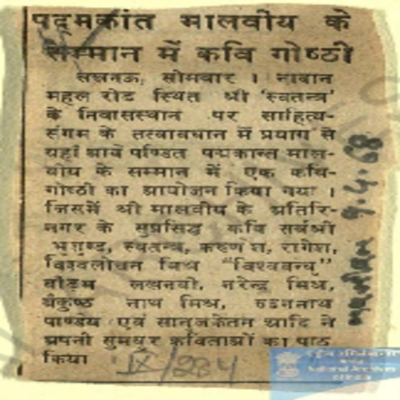 पद्मकांत मालवीय के
सम्मान में कवि गोष्ठी
लखनऊ, सोमवार । नादान
महल रोड स्थित श्री 'स्वतन्त्र'
के निवासस्थान पर साहित्य-
संगम के तत्वावधान में प्रयाग से
यहां आये पण्डित पद्मकान्त माल-
वीय के सम्मान में एक कवि-
गोष्ठी का आयोजन किया गया ।
जिसमें श्री मालवीय के अतिरि-
नगर के सुप्रसिद्ध कवि सर्वश्री
भुशुण्ड, स्वतन्त्र, करुणेश, रागेश,
विश्वलोचन मिश्र "विश्वबन्धु"
बौड़म लखनवी, नरेन्द्र मिश्र,
बैकुष्ठ नाथ मिश्र, नाथ
पाण्डेय एवं आदि ने
अपनी सुमधुर कविताओं का पाठ
किया
नवजीवन 9.4.68
IX/234